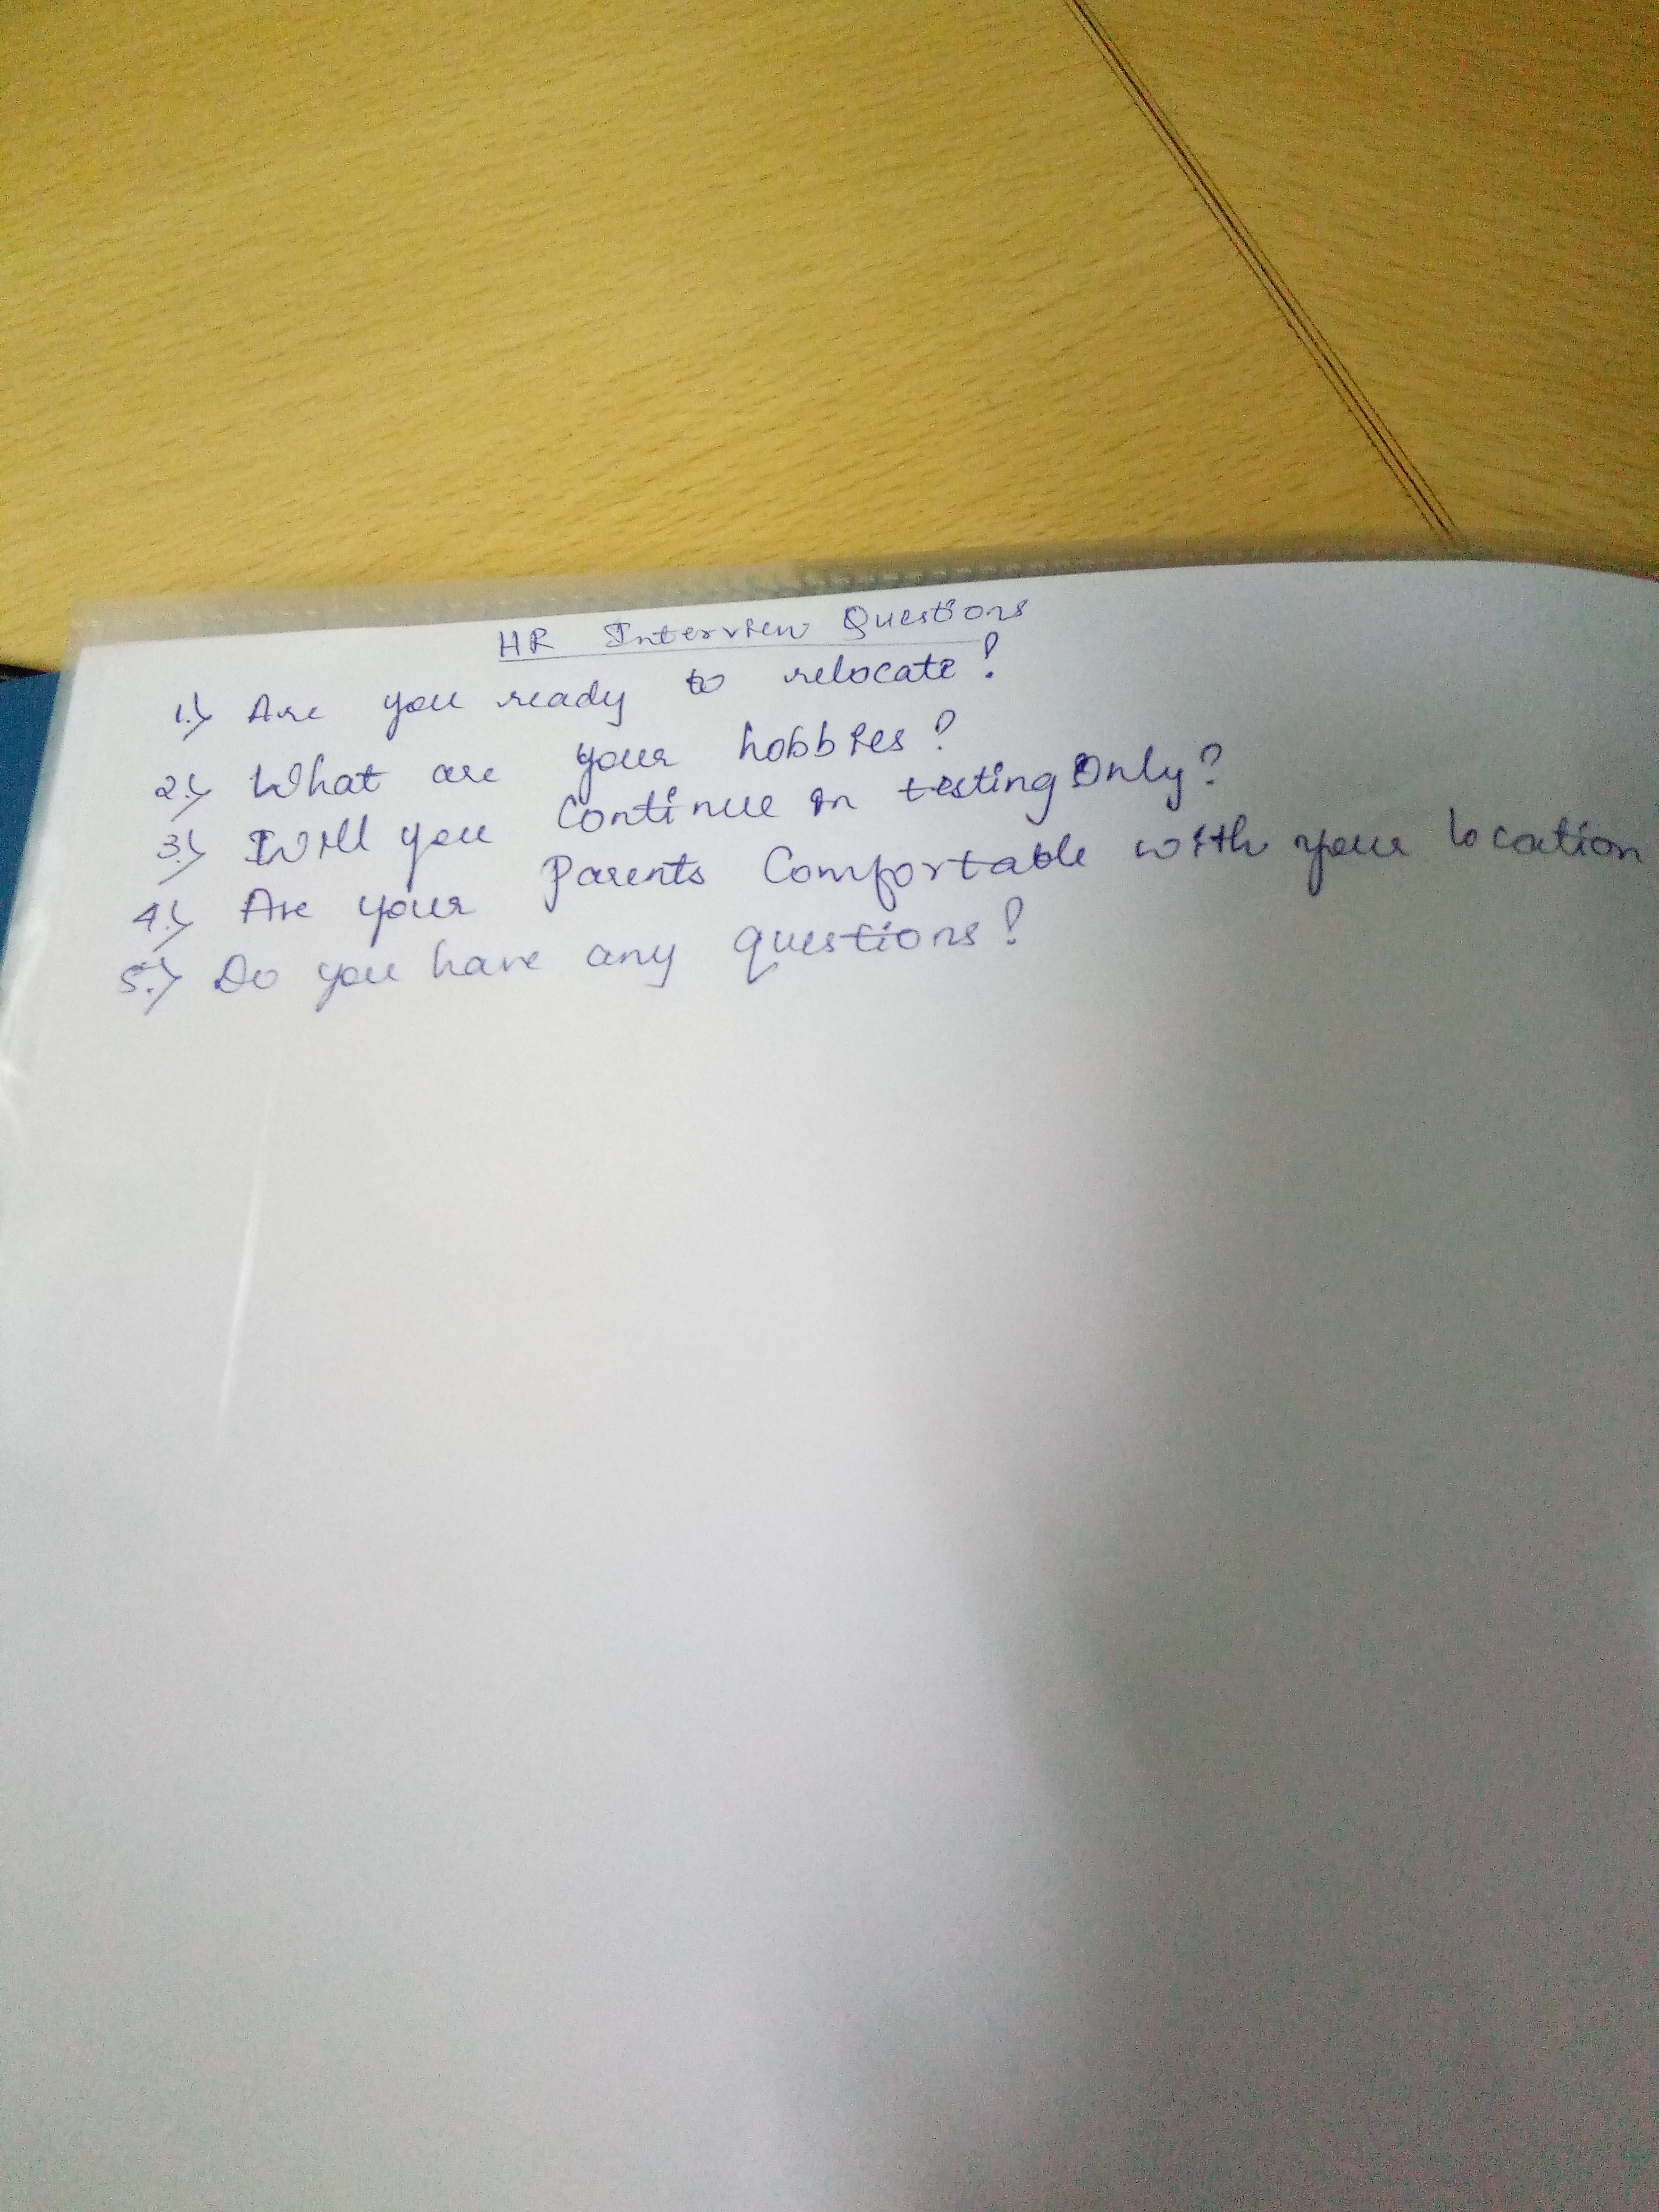 HR Interview Questions
1.) Are you ready to relocate?
2.) What are your hobbies?
3.) Will you continue in testing Only?
4.) Are your Parents Comfortable with your location
5.) Do you have any questions?